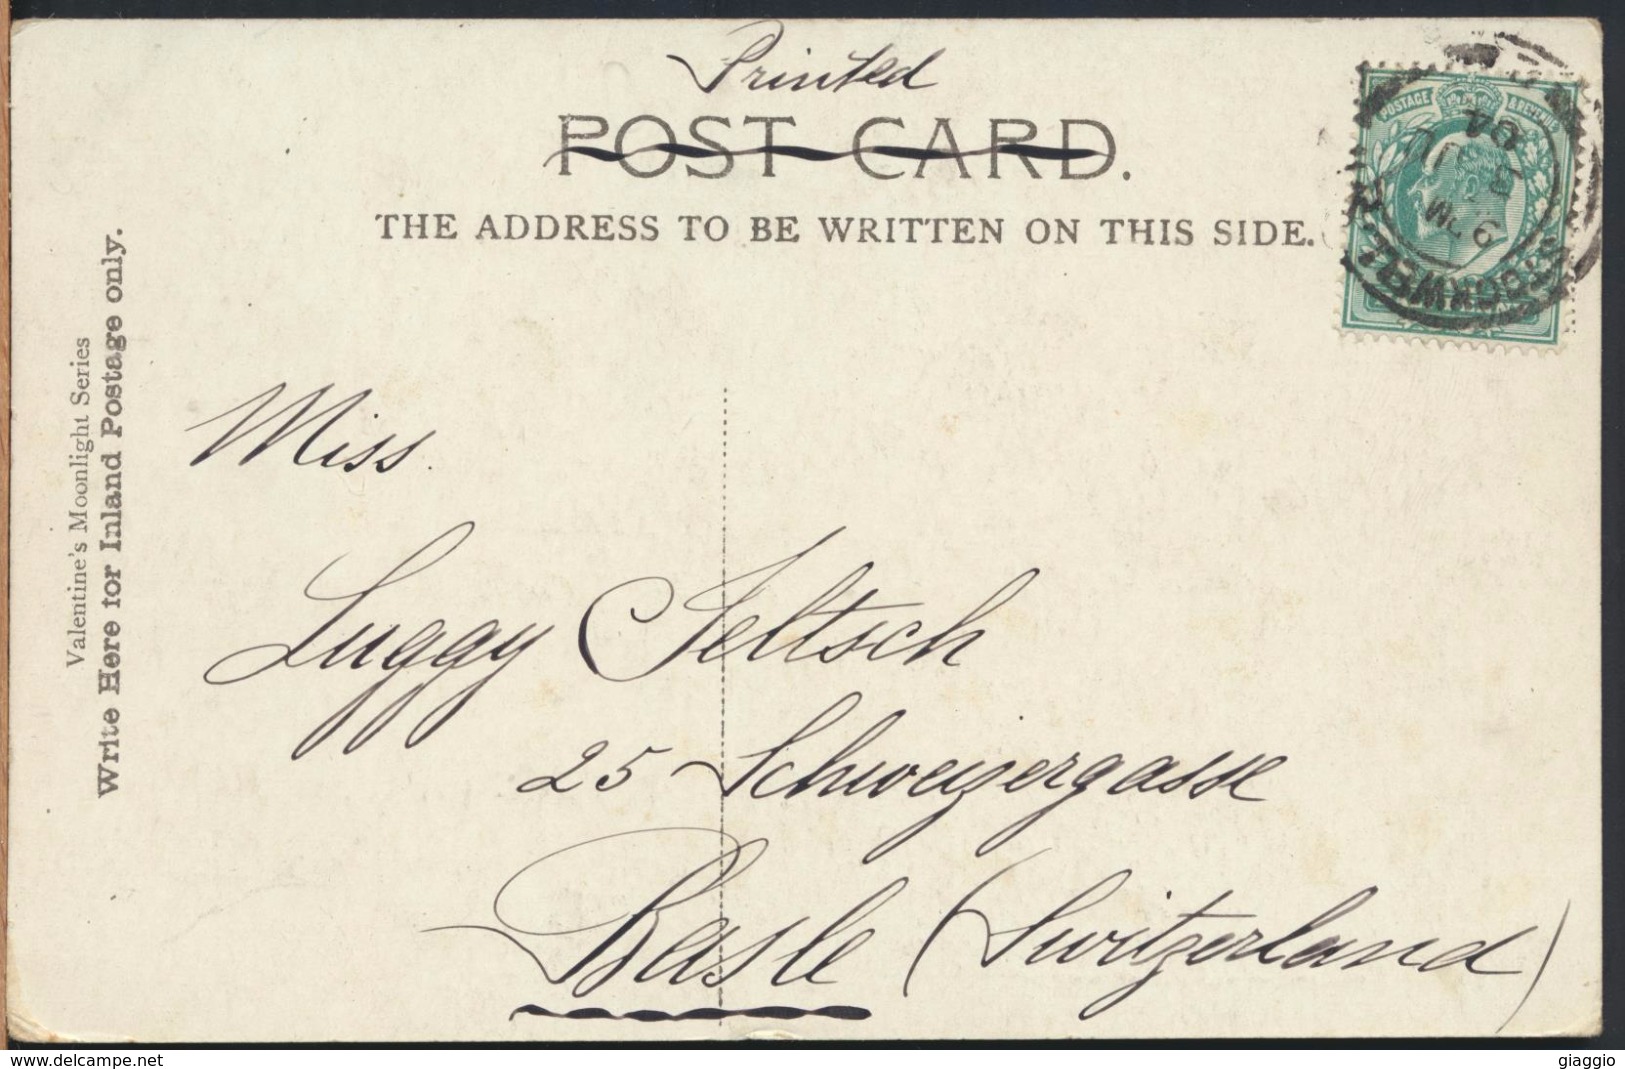 Printed
POST CARD.
THE ADDRESS TO BE WRITTEN ON THIS SIDE.
POSTAGE & REVENUE
9. PM
5 JU
04
STOCKWELL
Valentine's Moonlight Series
Write Here for Inland Postage only.
Miss.
Luggy Jeltsch
25 Schweizergasse
Basle (Switzerland)
https://www.delcampe.net
giaggio